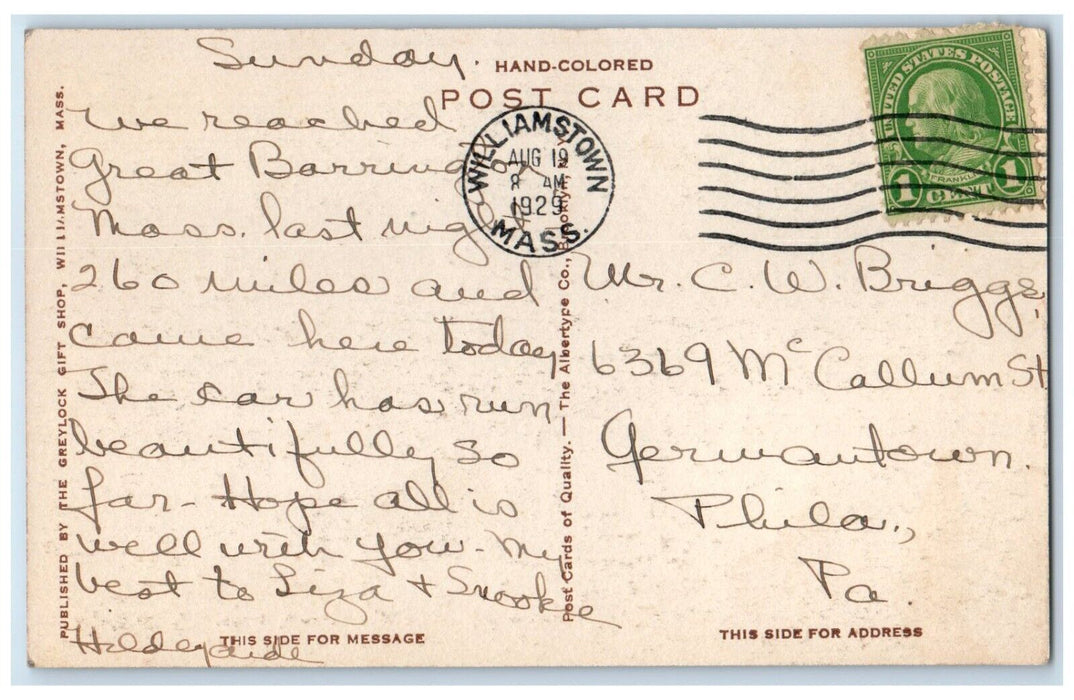 Sunday.
HAND-COLORED
POST CARD
We reached
Great Barrington
Mass. last night
260 miles and
came here today
The car has run
beautifully so
far - Hope all is
well with you - My
best to Liza + Snookie
Hildegarde
THIS SIDE FOR MESSAGE
PUBLISHED BY THE GREYLOCK GIFT SHOP, WILLIAMSTOWN, MASS.
Post Cards of Quality. — The Albertype Co., Brooklyn, N. Y.
WILLIAMSTOWN
AUG 19
8 AM
1929
MASS.
UNITED STATES POSTAGE
FRANKLIN
1 CENT 1
Mr. C. W. Briggs,
6369 McCallum St
Germantown.
Phila.,
Pa.
THIS SIDE FOR ADDRESS